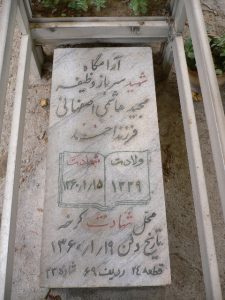 آرامگاه
شهید سرباز وظیفه
مجید هاشمی اصفهانی
فرزند احمد
ولادت شهادت
۱۳۳۹ ۱۳۶۰/۱/۱۵
محل شهادت کرخه
تاریخ دفن ۱۳۶۰/۱/۱۹
قطعه ۲۴ ردیف ۶۹ شماره ۲۳